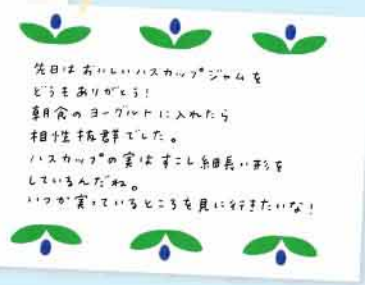 先日はおいしいハスカップジャムを
どうもありがとう!
朝食のヨーグルトに入れたら
相性抜群でした。
ハスカップの実はすこし細長い形を
しているんだね。
いつか実っているところを見に行きたいな!